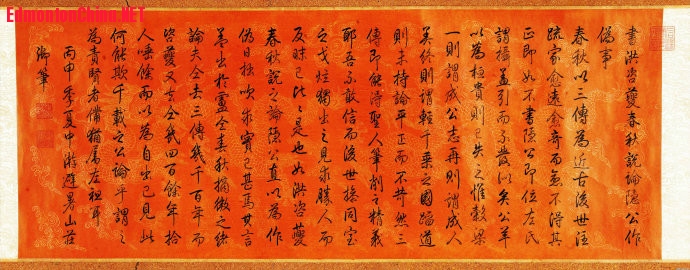 EdmontonChina.NET
書洪咨夔春秋說論隱公作
偽事
春秋以三傳為近古後世注
疏家愈遠愈奇而無不得其
正即如不書隱公即位左氏
謂攝蓋引而不發以矣公羊
以為桓貴則已失之惟穀梁
一則謂成公志再則謂成人
美終則謂輕千乘之國蹈道
則未持論平正而不苛然三
傳即能得聖人筆削之精義
耶吾不敢信而後世操同室
之戈炫獨出之見求勝人而
反昧己比比是也如洪咨夔
春秋說之論隱公直以為作
偽日拙吹求實已甚焉其言
蓋出於盧仝春秋摘微之緒
論夫仝去三傳幾千百年而
咨夔又去仝幾四百餘年拾
人唾餘而以為自出己見此
何能欺千載之公論乎謂之
為責賢者備猶屬左袒耳
丙申季夏中游避暑山莊
御筆